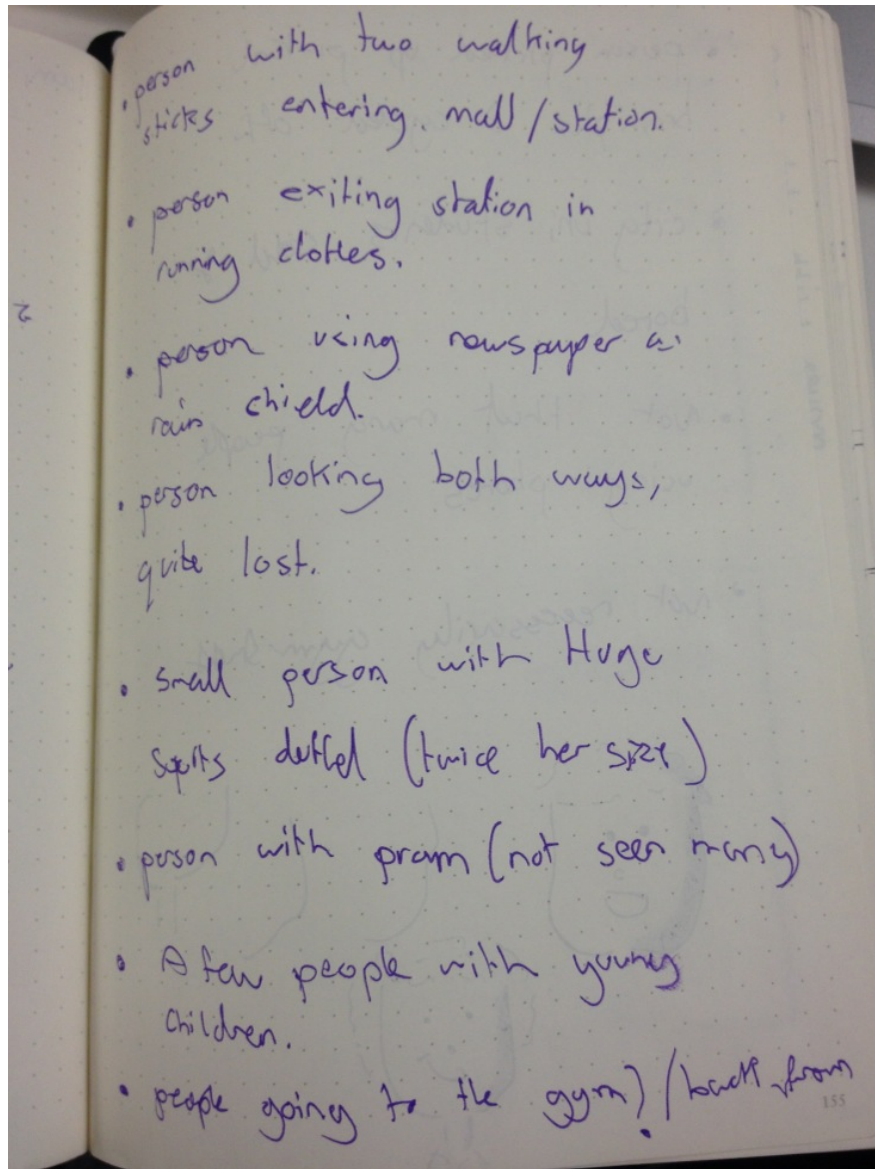 • person with two walking
sticks entering mall/station.
• person exiting station in
running clothes.
• person using newspaper as
rain shield.
• person looking both ways,
quite lost.
• Small person with Huge
sports duffel (twice her size)
• person with pram (not seen many)
• A few people with young
children.
• people going to the gym?/back from
155